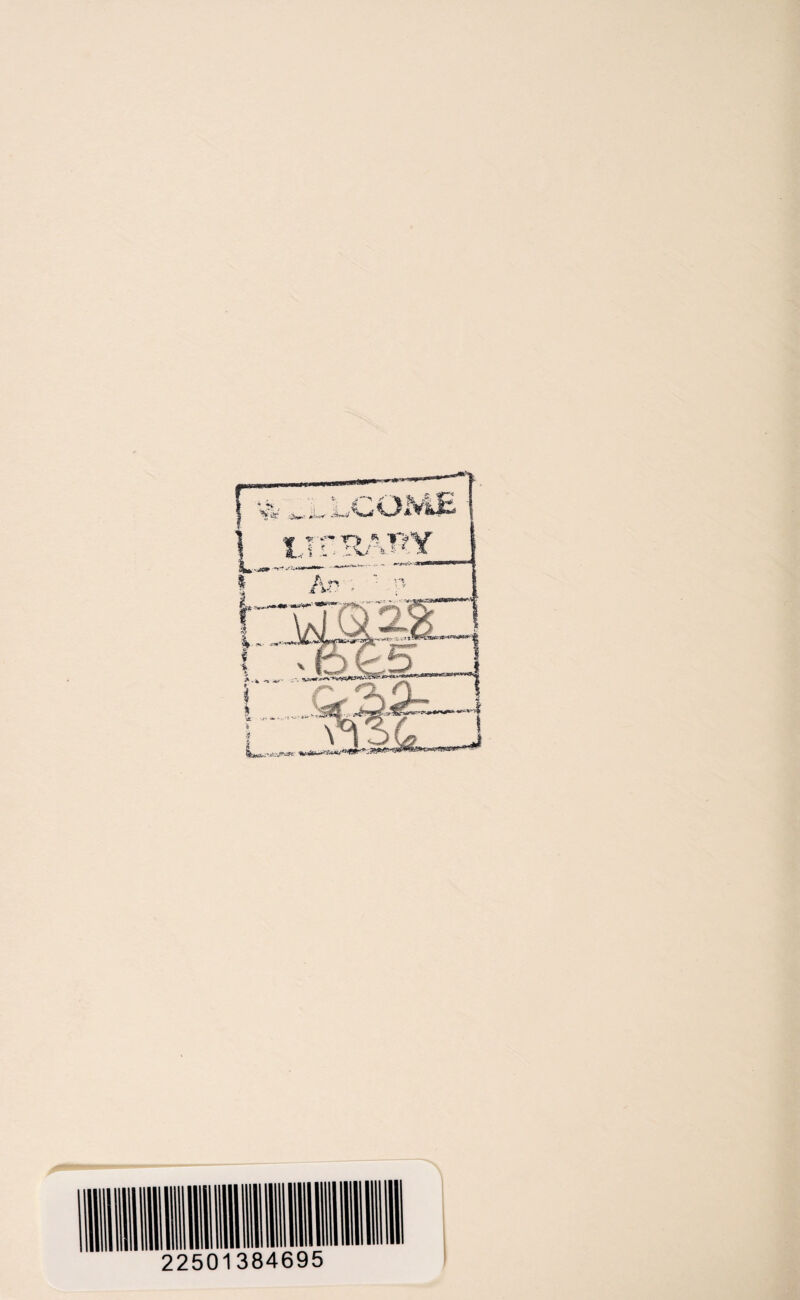 WELLCOME
LIBRARY
WQ28
.BE5
G32
1936
22501384695